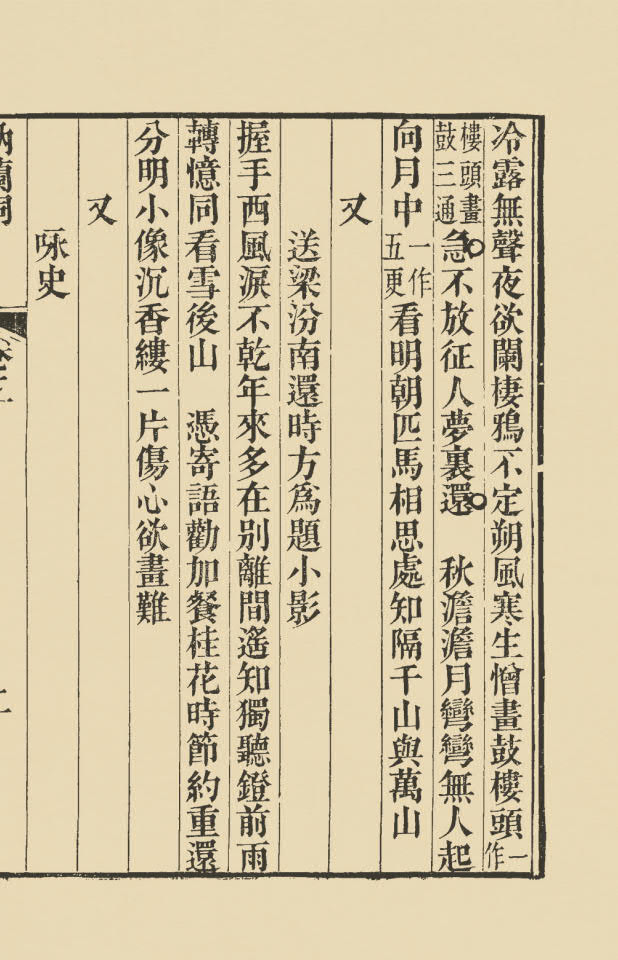 冷露無聲夜欲闌棲鴉不定朔風寒生憎畫鼓樓頭一作
樓頭畫鼓三通急不放征人夢裏還　秋澹澹月彎彎無人起
向月中一作五更看明朝匹馬相思處知隔千山與萬山
又
送梁汾南還時方爲題小影
握手西風淚不乾年來多在別離間遙知獨聽鐙前雨
轉憶同看雪後山　憑寄語勸加餐桂花時節約重還
分明小像沉香縷一片傷心欲畫難
又
咏史